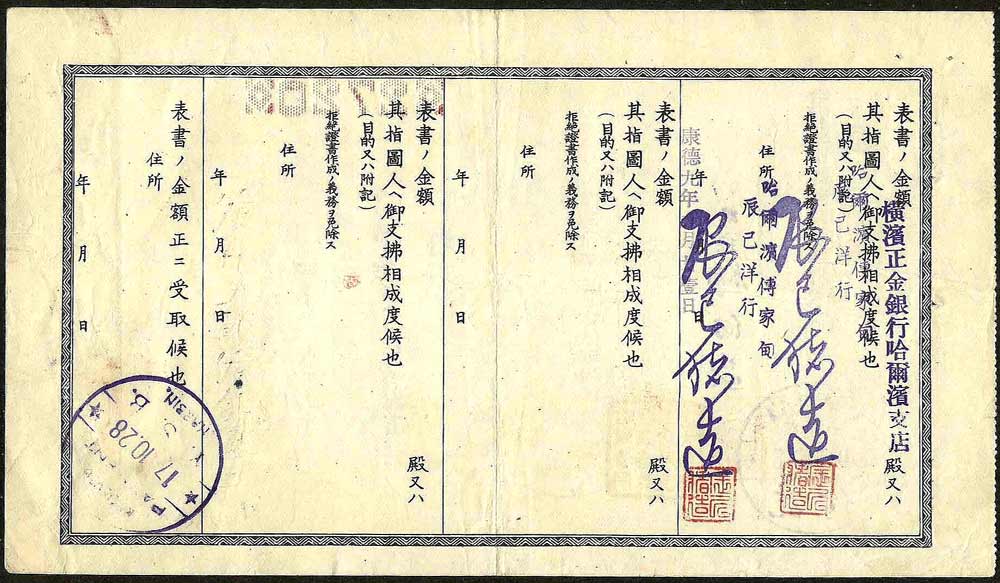 表書ノ金額
橫濱正金銀行哈爾濱支店
殿又ハ
其指圖人ヘ御支拂相成度候也
(目的又ハ附記)
哈爾濱傳家甸
辰己洋行
拒絶證書作成ノ義務ヲ免除ス
住所
哈爾濱傳家甸
辰己洋行
康德九年 月 壹日
年 月 日
表書ノ金額 殿又ハ
其指圖人ヘ御支拂相成度候也
(目的又ハ附記)
拒絶證書作成ノ義務ヲ免除ス
住所
年 月 日
表書ノ金額 殿又ハ
其指圖人ヘ御支拂相成度候也
(目的又ハ附記)
拒絶證書作成ノ義務ヲ免除ス
住所
年 月 日
表書ノ金額正ニ受取候也
住所
年 月 日
17.10.28
HARBIN.